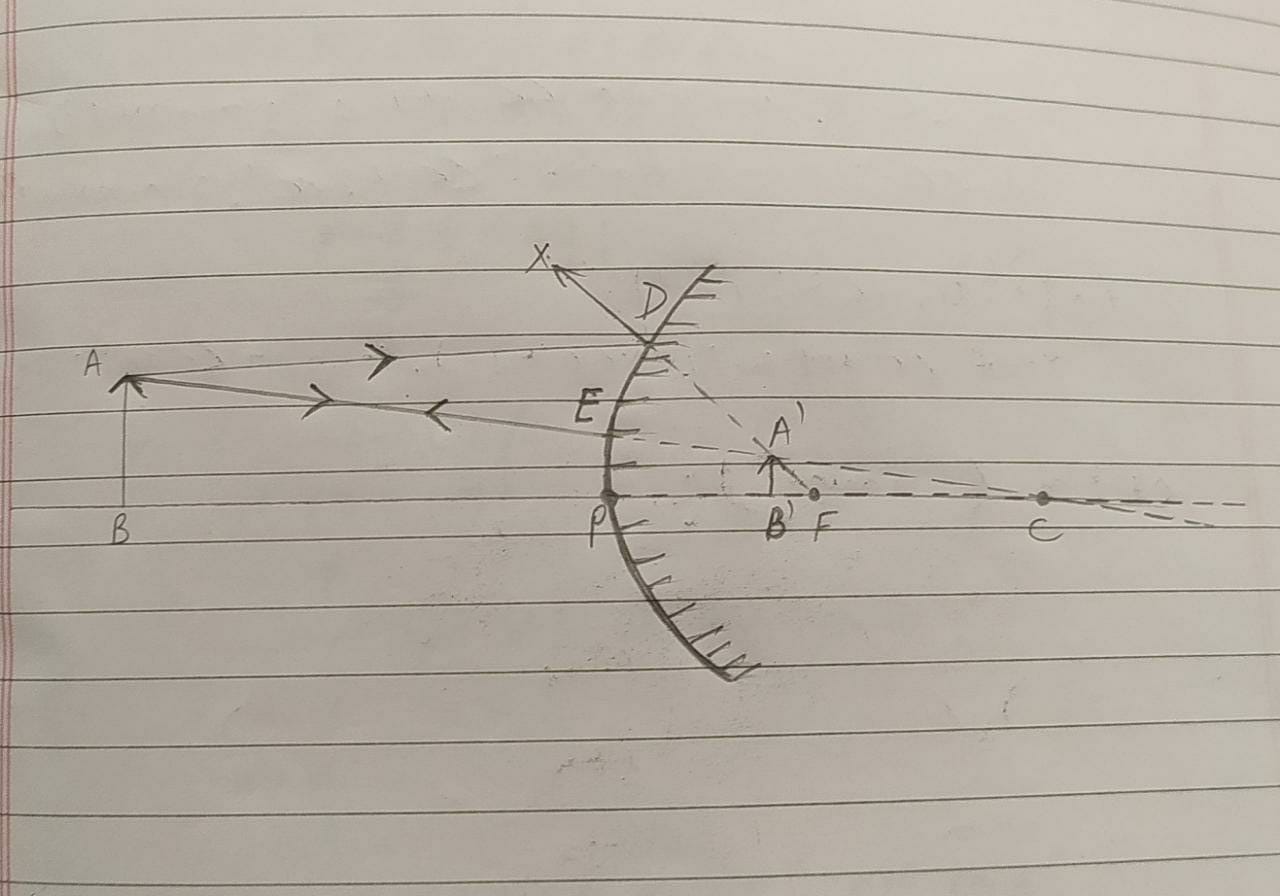 X
D
A
E
A'
B
P
B'
F
C